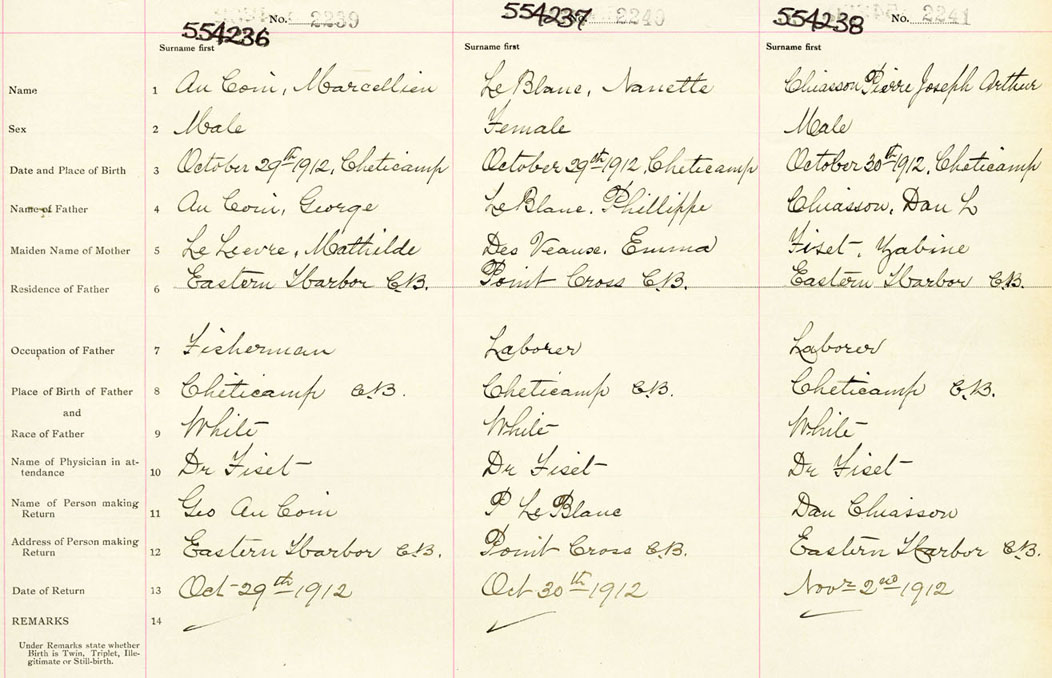 No. 2239 2240 No. 2241
554236 554237 554238
Surname first Surname first Surname first
Name 1 Au Coin, Marcellien Le Blanc, Nanette Chiasson Pierre Joseph Arthur
Sex 2 Male Female Male
Date and Place of Birth 3 October 29th 1912, Cheticamp October 29th 1912, Cheticamp October 30th 1912, Cheticamp
Name of Father 4 Au Coin, George Le Blanc, Phillippe Chiasson, Dan L
Maiden Name of Mother 5 Le Lievre, Mathilde Des Veaux, Emma Fiset, Zabine
Residence of Father 6 Eastern Harbor C.B. Point Cross C.B. Eastern Harbor C.B.
Occupation of Father 7 Fisherman Laborer Laborer
Place of Birth of Father 8 Cheticamp C.B. Cheticamp C.B. Cheticamp C.B.
and
Race of Father 9 White White White
Name of Physician in at-
tendance 10 Dr Fiset Dr Fiset Dr Fiset
Name of Person making
Return 11 Geo Au Coin P Le Blanc Dan Chiasson
Address of Person making
Return 12 Eastern Harbor C.B. Point Cross C.B. Eastern Harbor C.B.
Date of Return 13 Oct 29th 1912 Oct 30th 1912 Novr 2nd 1912
REMARKS 14
Under Remarks state whether
Birth is Twin, Triplet, Ille-
gitimate or Still-birth.